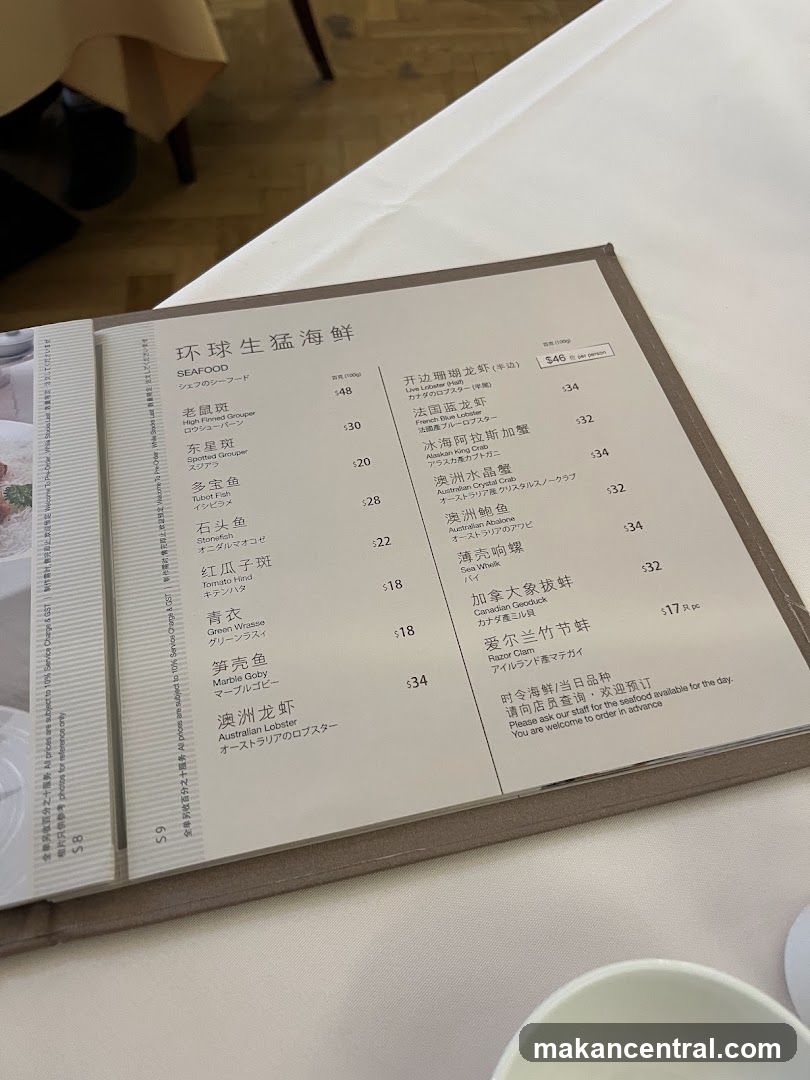 环球生猛海鲜
SEAFOOD
シェフのシーフード
百克 (100g)
老鼠斑 $48
High Finned Grouper
ロウシューパーン
东星斑 $30
Spotted Grouper
スジアラ
多宝鱼 $20
Tubot Fish
イシビラメ
石头鱼 $28
Stonefish
オニダルマオコゼ
红瓜子斑 $22
Tomato Hind
キテンハタ
青衣 $18
Green Wrasse
グリーンラスィ
笋壳鱼 $18
Marble Goby
マーブルゴビー
澳洲龙虾 $34
Australian Lobster
オーストラリアのロブスター
百克 (100g)
开边珊瑚龙虾 (半边) $46 位 per person
Live Lobster (Half)
カナダのロブスター (半尾)
法国蓝龙虾 $34
French Blue Lobster
法國產ブルーロブスター
冰海阿拉斯加蟹 $32
Alaskan King Crab
アラスカ產カブトガニ
澳洲水晶蟹 $34
Australian Crystal Crab
オーストラリア産 クリスタルスノークラブ
澳洲鲍鱼 $32
Australian Abalone
オーストラリアのアワビ
薄壳响螺 $34
Sea Whelk
バイ
加拿大象拔蚌 $32
Canadian Geoduck
カナダ產ミル貝
爱尔兰竹节蚌 $17 只 pc
Razor Clam
アイルランド產マテガイ
时令海鲜/当日品种
请向店员查询，欢迎预订
Please ask our staff for the seafood available for the day.
You are welcome to order in advance
全单另收百分之十服务 All prices are subject to 10% Service Charge & GST | 制作需时,售完即止,欢迎预定 Welcome To Pre-Order, While Stocks Last
相片只供参考 photos for reference only
S 8
全单另收百分之十服务 All prices are subject to 10% Service Charge & GST | 制作需时,售完即止,欢迎预定 Welcome To Pre-Order, While Stocks Last
S 9
makancentral.com